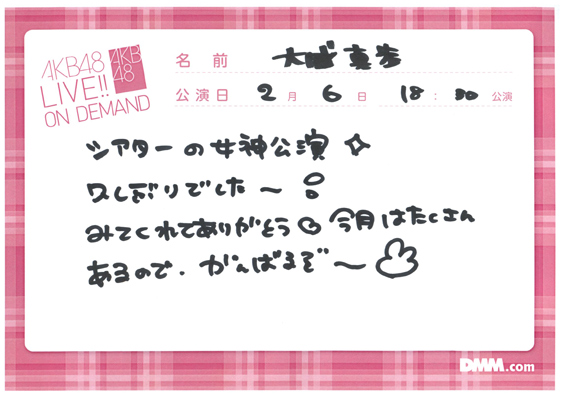 AKB48
LIVE!!
ON DEMAND
AKB
48
名前 大 真歩
公演日 2月 6日 18:30公演
シアターの女神公演
久しぶりでした〜!
みてくれてありがとう 今月はたくさん
あるので、がんばるぞ〜
DMM.com